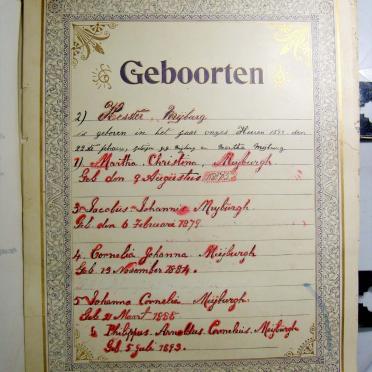 Geboorten
2) Hester, Mijburg
is geboren in het jaar onzes Heeren 18 den
22ste
1) Martha, Christina, Meyburgh
Geb den 9 Augustus
3 Jacobus Johannis Meyburgh
Geb den 6 Februarie 1879
4. Cornelia Johanna Meijburgh
Geb 13 November 1884.
5 Johanna Cornelia Meijburgh
Geb 21 Maart 1888
6 Philippus. Arnoldus. Cornelius. Meyburgh
Geb. 5 Juli 1893.